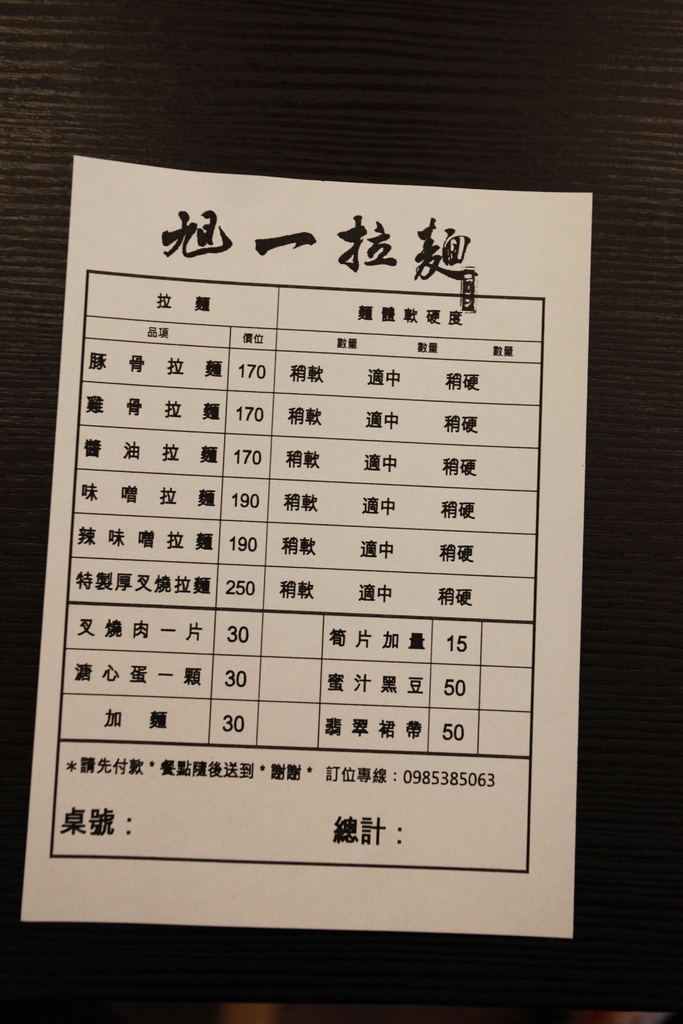 旭一拉麵
拉麵 麵體軟硬度
品項 價位 數量 數量 數量
豚骨拉麵 170 稍軟 適中 稍硬
雞骨拉麵 170 稍軟 適中 稍硬
醬油拉麵 170 稍軟 適中 稍硬
味噌拉麵 190 稍軟 適中 稍硬
辣味噌拉麵 190 稍軟 適中 稍硬
特製厚叉燒拉麵 250 稍軟 適中 稍硬
叉燒肉一片 30 筍片加量 15
溏心蛋一顆 30 蜜汁黑豆 50
加麵 30 翡翠裙帶 50
*請先付款*餐點隨後送到*謝謝* 訂位專線：0985385063
桌號： 總計：